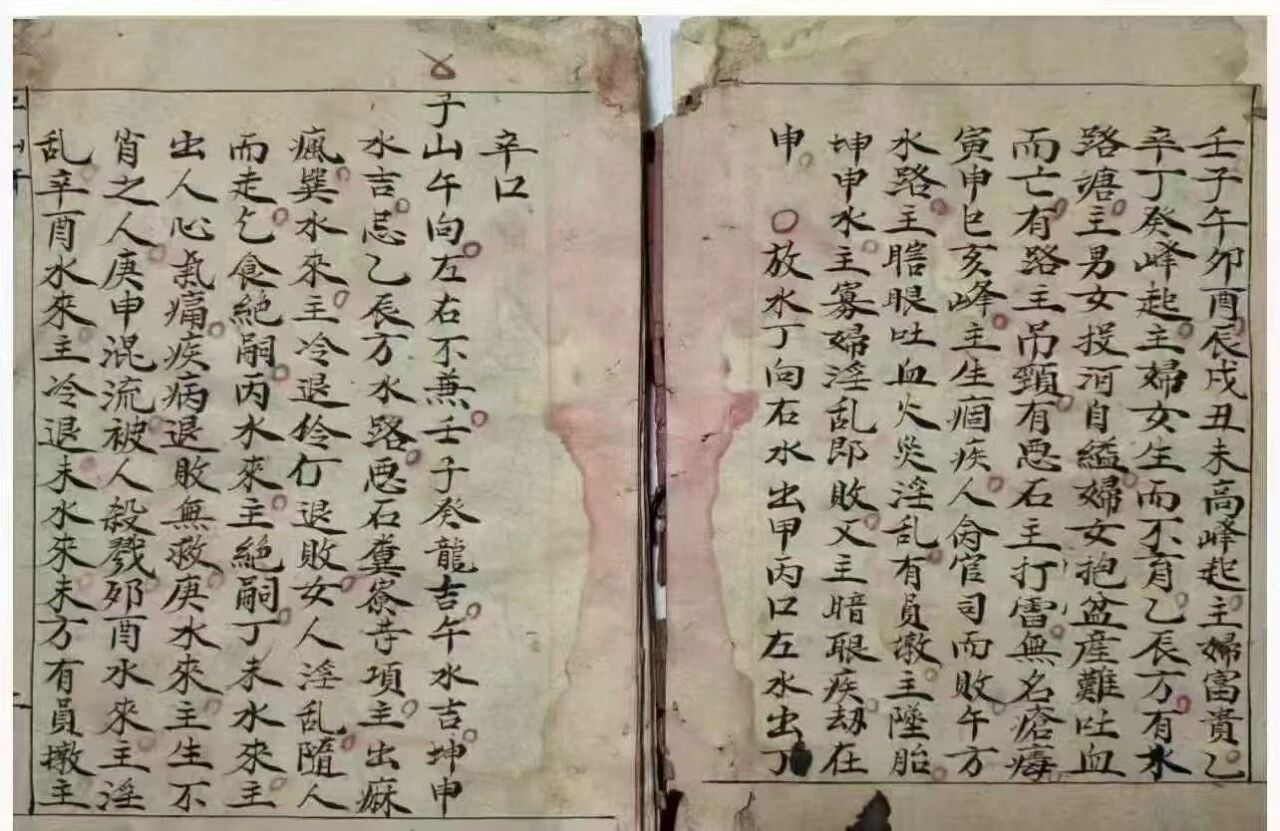 壬子午卯酉辰戌丑未高峰起主婦富貴乙
辛丁癸峰起主婦女生而不育乙辰方有水
路塘主男女投河自縊婦女抱盆産難吐血
而亡有路主吊頸有惡石主打雷無名瘡毒
寅申巳亥峰主生痼疾人命官司而敗午方
水路主瞎眼吐血火災淫乱有員墩主墜胎
坤申水主寡婦淫乱即敗又主暗眼疾劫在
申 放水丁向右水出甲丙口左水出丁
辛口
子山午向左右不兼壬子癸龍吉午水吉坤申
水吉忌乙辰方水路惡石糞寮寺項主出痳
瘋巽水來主冷退伶仃退敗女人淫乱隨人
而走乞食絶嗣丙水來主絶嗣丁未水來主
出人心氣痛疾病退敗無救庚水來主生不
肖之人庚申混流被人殺戮卯酉水來主淫
乱辛酉水來主冷退未水來未方有員墩主